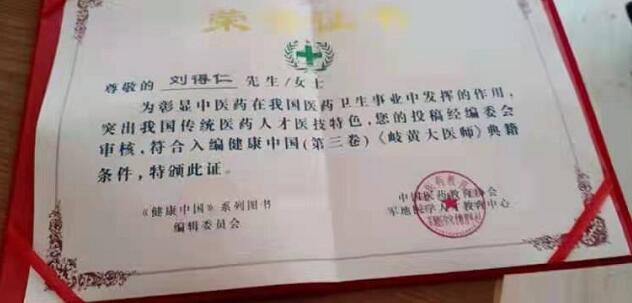 荣誉证书
尊敬的 刘得仁 先生/女士
为彰显中医药在我国医药卫生事业中发挥的作用，
突出我国传统医药人才医技特色，您的投稿经编委会
审核，符合入编健康中国(第三卷)《岐黄大医师》典籍
条件，特颁此证。
《健康中国》系列图书
编辑委员会
中国医药教育协会
军地医学人才教育中心